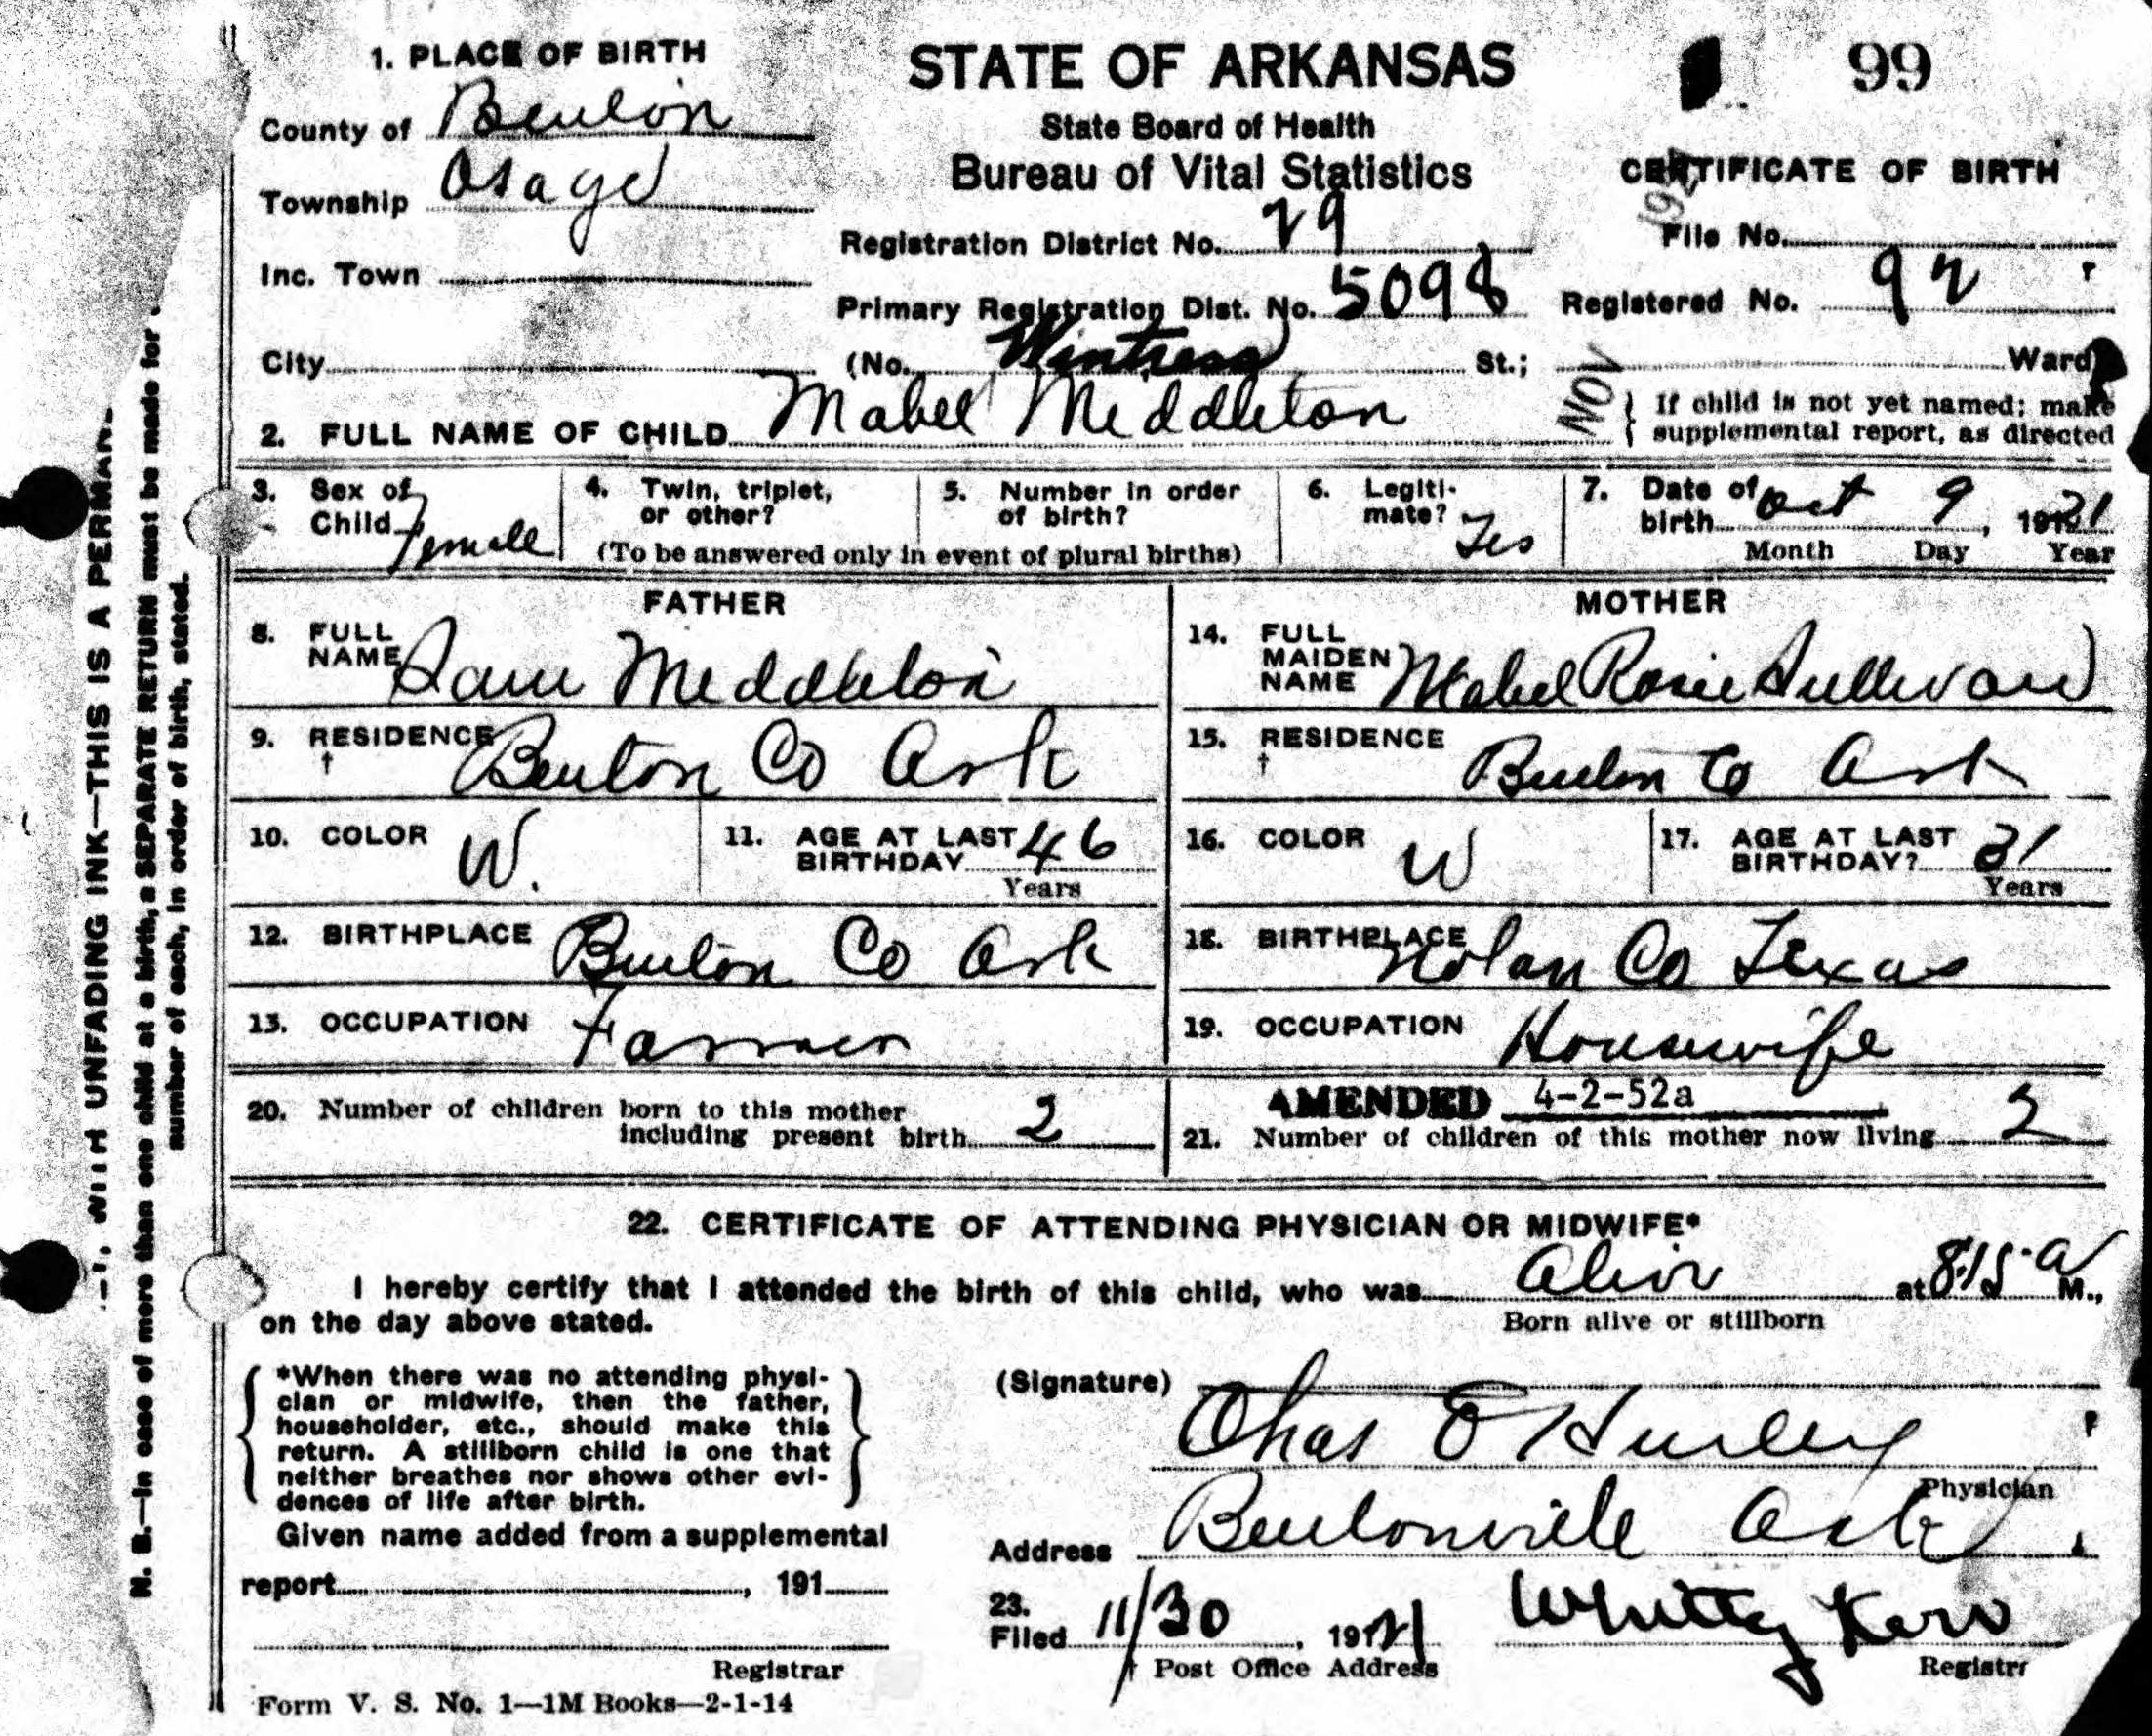 1. PLACE OF BIRTH
County of Benton
Township Osage
Inc. Town
City
STATE OF ARKANSAS
State Board of Health
Bureau of Vital Statistics
Registration District No. 29
Primary Registration Dist. No. 5098
(No. Wintress St.; Ward
99
CERTIFICATE OF BIRTH
File No.
Registered No. 92
NOV
2. FULL NAME OF CHILD Mabel Meddleton
If child is not yet named: make
supplemental report, as directed
3. Sex of
Child Female
4. Twin, triplet,
or other?
5. Number in order
of birth?
(To be answered only in event of plural births)
6. Legiti-
mate? Yes
7. Date of
birth Oct 9, 1921
Month Day Year
FATHER
8. FULL
NAME Sam Meddleton
9. RESIDENCE Benton Co Ark
†
10. COLOR W.
11. AGE AT LAST
BIRTHDAY 46
Years
12. BIRTHPLACE Benton Co Ark
13. OCCUPATION Farmer
MOTHER
14. FULL
MAIDEN
NAME Mabel Rosie Sullivan
15. RESIDENCE Benton Co Ark
†
16. COLOR W
17. AGE AT LAST
BIRTHDAY? 31
Years
18. BIRTHPLACE Nolan Co Texas
19. OCCUPATION Housewife
20. Number of children born to this mother
including present birth 2
AMENDED 4-2-52a
21. Number of children of this mother now living 2
22. CERTIFICATE OF ATTENDING PHYSICIAN OR MIDWIFE*
I hereby certify that I attended the birth of this child, who was Alive at 8:15 a M.,
on the day above stated.
Born alive or stillborn
*When there was no attending physi-
cian or midwife, then the father,
householder, etc., should make this
return. A stillborn child is one that
neither breathes nor shows other evi-
dences of life after birth.
Given name added from a supplemental
report, 191
Registrar
Form V. S. No. 1—1M Books—2-1-14
(Signature)
Chas E Hurley
Physician
Address Bentonville Ark
23.
Filed 11/30, 1921 Whitty Kerr
Post Office Address
Registr
WITH UNFADING INK—THIS IS A PERMAN
N. B.—In case of more than one child at a birth, a SEPARATE RETURN must be made for
number of each, in order of birth, stated.